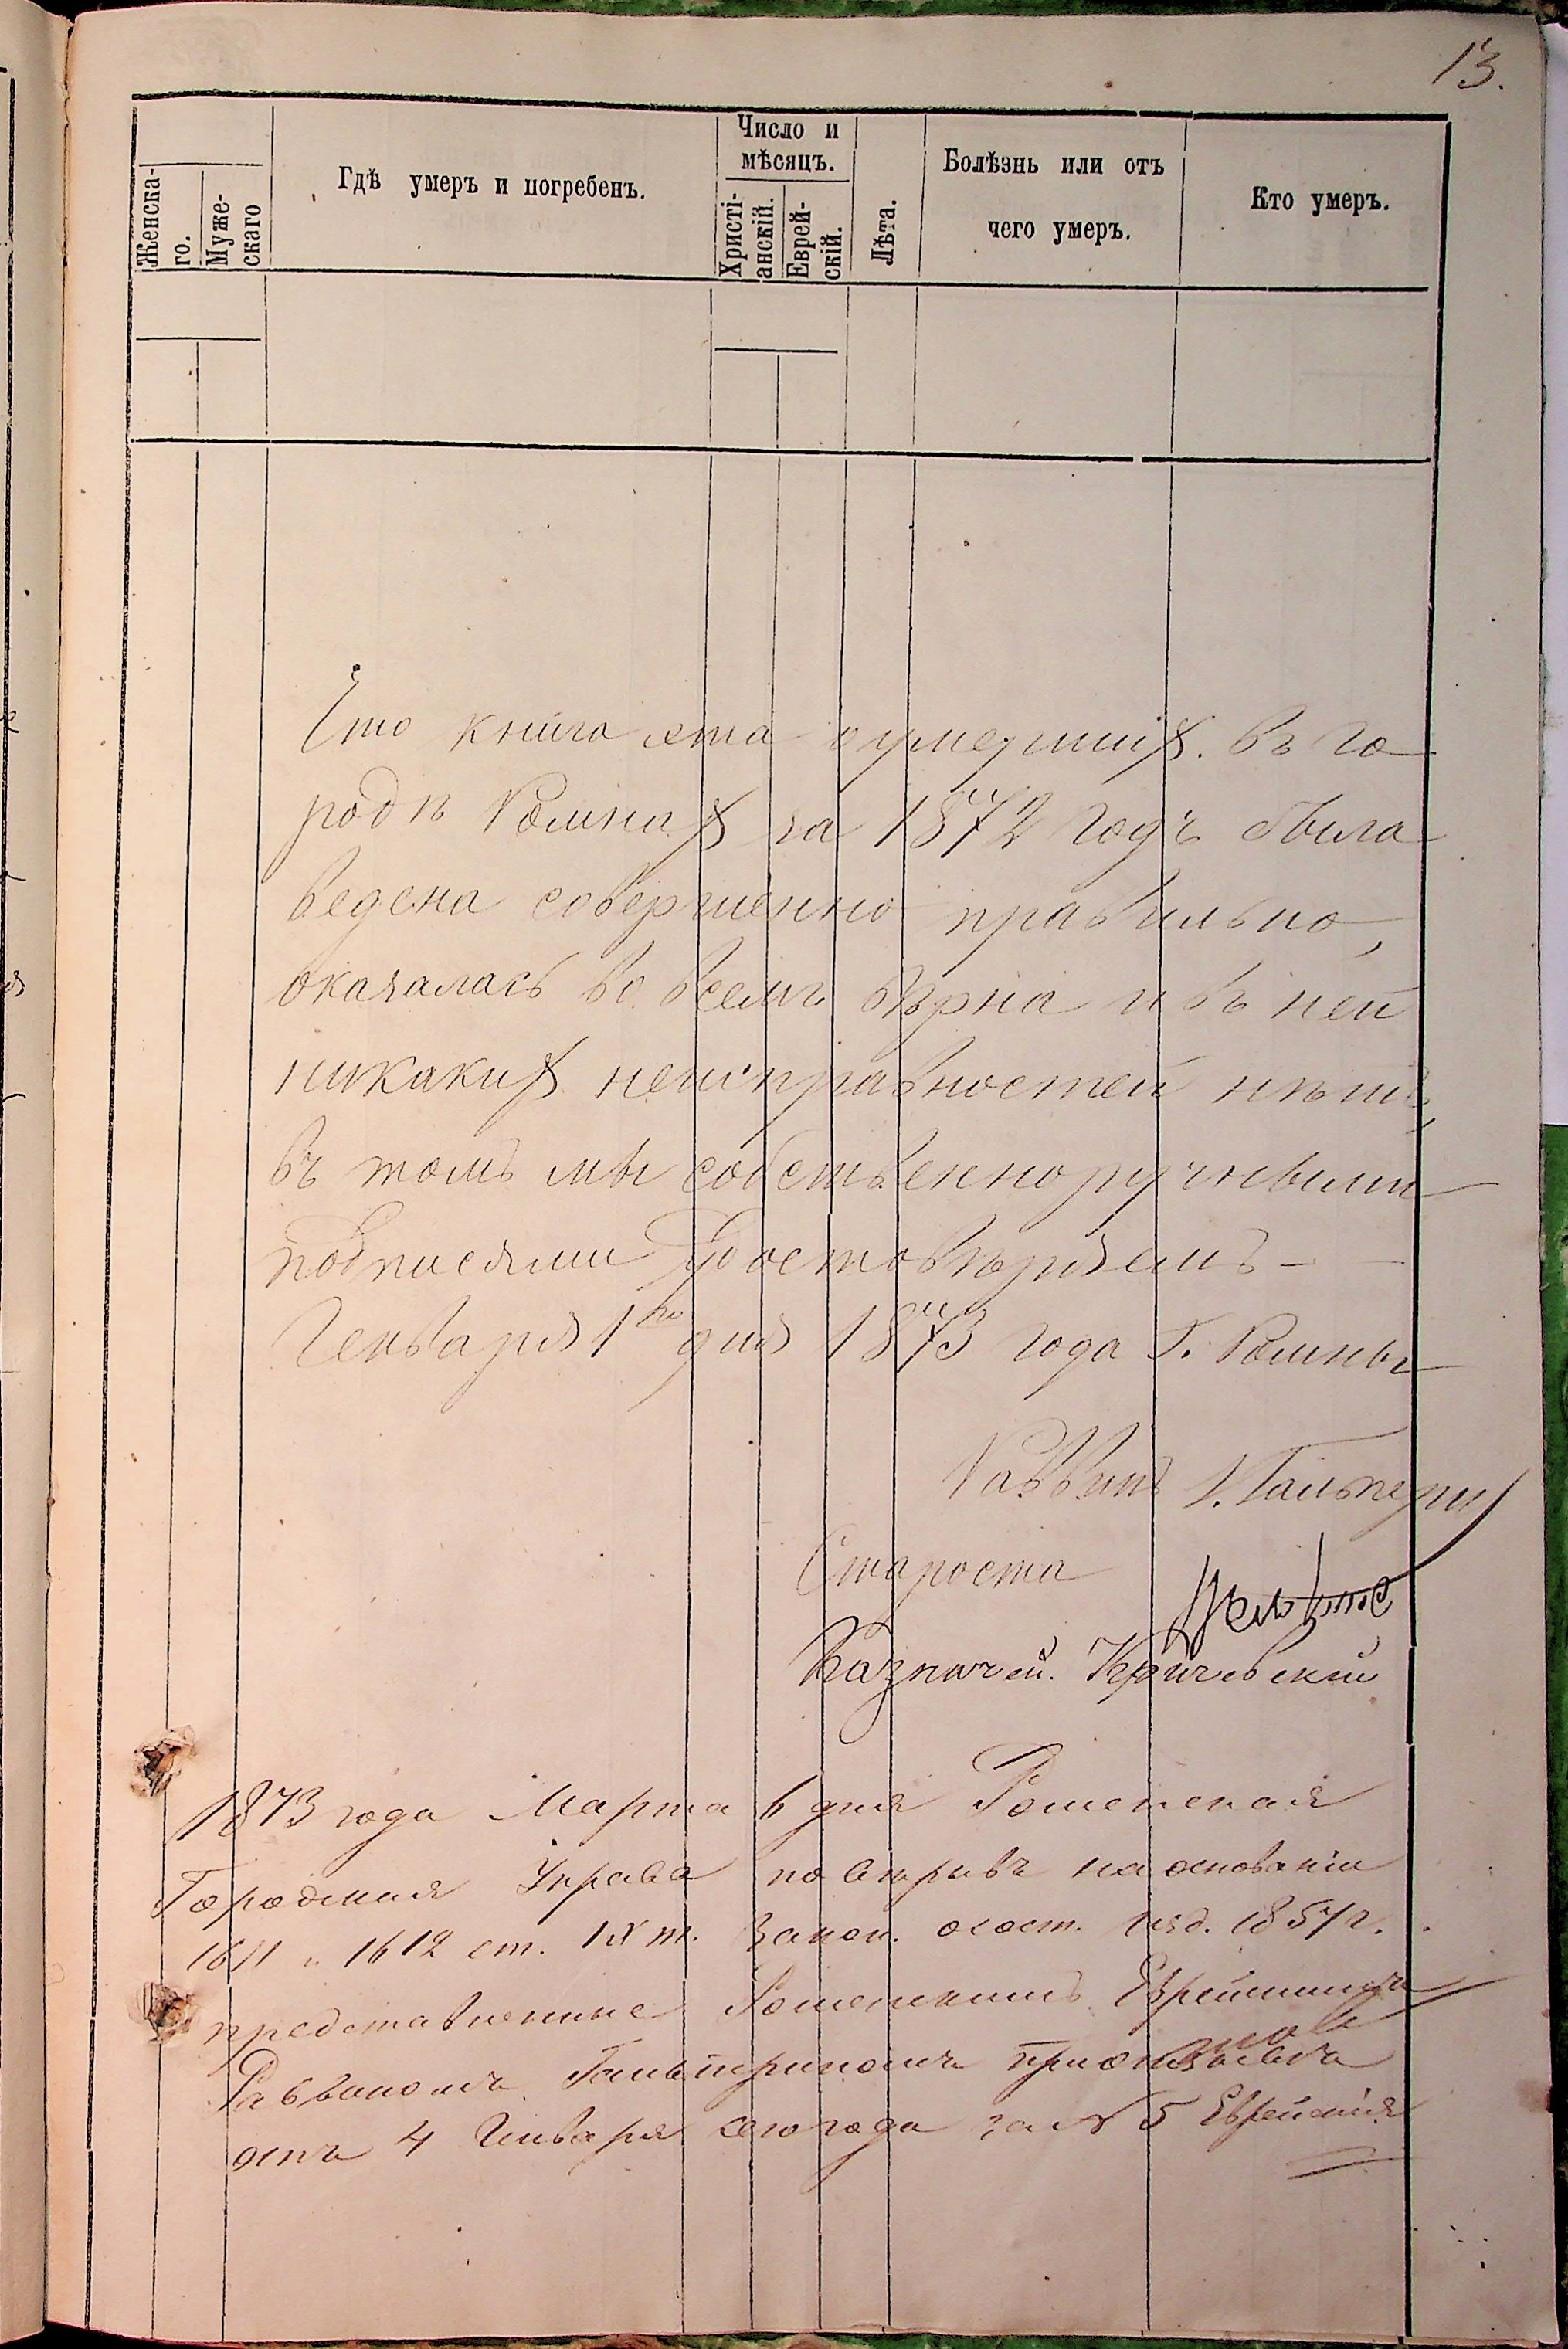 13.
Женска-
го.
Муже-
скаго
Гдѣ умеръ и погребенъ.
Число и
мѣсяцъ.
Христі-
анскій.
Еврей-
скій.
Лѣта.
Болѣзнь или отъ
чего умеръ.
Кто умеръ.
Что книга эта о умершихъ въ го
родѣ Ромнахъ за 1872 годъ была
ведена совершенно правильно,
оказалась во всемъ вѣрна и въ ней
никакихъ неисправностей нѣтъ,
въ томъ мы собственноручными
подписями удостовѣряемъ -
Генваря 1го дня 1873 года Г. Ромны
Раввинъ И. Гальперин
Староста
Казначей. Кричевскій
1873 года Марта 6 дня Роменская
Городская Управа повѣривъ на основаніи
1611 и 1612 ст. IX т. Закон. о сост. изд. 1857 г.
представленные Роменскимъ Еврейскимъ
Раввиномъ Гальпериномъ при
отъ 4 Генваря сего года за N 5 Еврейскія